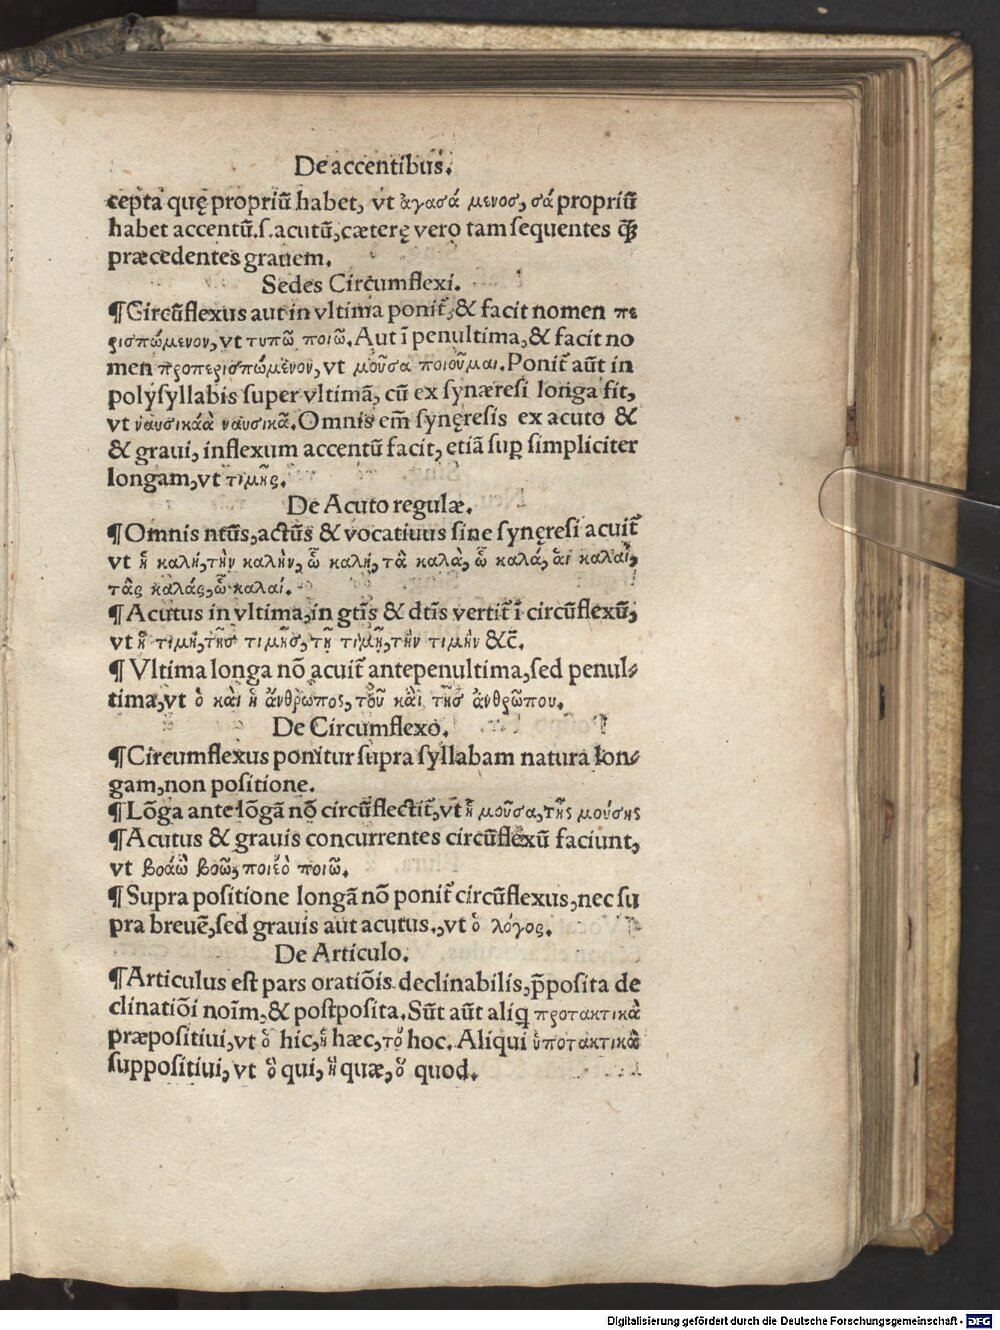 De accentibus.
cepta quę propriū habet, vt ἀγασά μενοσ, σά propriū
habet accentū.ſ.acutū,cæterę vero tam ſequentes ꝙ̃
præcedentes grauem.
Sedes Circumflexi.
¶Circūflexus aut in vltima ponit᷑,& facit nomen πε
ρισπώμενον,vt τυπῶ ποιῶ.Aut ī penultima,& facit no
men προπερισπώμενον,vt μοῦσα ποιοῦμαι.Ponit᷑ aūt in
polyſyllabis ſuper vltimā, cū ex ſynæreſi longa fit,
vt ναυσικάὰ ναυσικᾶ.Omnis em̄ ſynęreſis ex acuto &
& graui, inflexum accentū facit, etiā ſuꝑ ſimpliciter
longam,vt τιμῆς.
De Acuto regulæ.
¶Omnis ntūs,actūs & vocatiuus ſine ſynęreſi acuit᷑
vt ἡ καλή,τὴν καλὴν, ὦ καλή,τὰ καλὰ, ὦ καλά,αἱ καλαί,
τὰς καλάς,ὦ καλαί.
¶Acutus in vltima,in gtīs & dtīs vertit᷑ ī circūflexū,
vt ἡ τιμή,τῆσ τιμῆσ,τῇ τιμῇ,τὴν τιμὴν &c̄.
¶Vltima longa nō acuit᷑ antepenultima,ſed penul⸗
tima,vt ὁ καὶ ἡ ἄνθρωπος,τοῦ καὶ τῆσ ἀνθρῶπου.
De Circumflexo.
¶Circumflexus ponitur ſupra ſyllabam natura lon⸗
gam,non poſitione.
¶Lōga ante lōgā nō circūflectit᷑,vt ἡ μοῦσα,τῆς μούσης
¶Acutus & grauis concurrentes circūflexū faciunt,
vt βοάὼ βοῶ, ποιέὸ ποιῶ.
¶Supra poſitione longā nō ponit᷑ circūflexus,nec ſu
pra breuē,ſed grauis aut acutus.,vt ὁ λόγος.
De Articulo.
¶Articulus eſt pars oratiōis declinabilis,p̄poſita de
clinatiōi noīm,& poſtpoſita.Sūt aūt aliq προτακτικὰ
præpoſitiui,vt ὁ hic,ἡ hæc,τὸ hoc.Aliqui ὑποτακτικὰ
ſuppoſitiui, vt ὃ qui, ἣ quæ, ὅ quod.
Digitalisierung gefördert durch die Deutsche Forschungsgemeinschaft - DFG